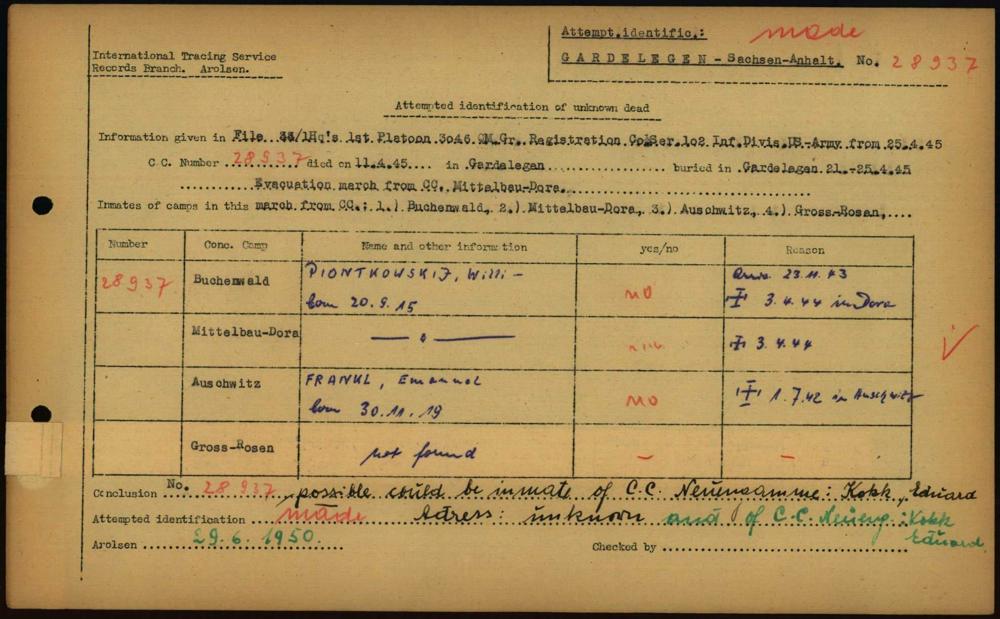 Attempt.identific.: made
International Tracing Service
Records Branch. Arolsen.
GARDELEGEN - Sachsen-Anhalt. No. 28937
Attempted identification of unknown dead
Information given in File 33/1Hq's 1st Platoon 3046 QM Gr. Registration Co Ser 102 Inf. Divis. US-Army from 25.4.45
C.C. Number 28937 died on 11.4.45 .... in Gardelegen .... buried in Gardelagen 21.-25.4.45
Evacuation march from CC. Mittelbau-Dora.
Inmates of camps in this march from CC.: 1.) Buchenwald, 2.) Mittelbau-Dora, 3.) Auschwitz, 4.) Gross-Rosen,....
Number Conc. Camp Name and other information yes/no Reason
28937 Buchenwald PIONTKOWSKIJ, Willi - no 23.11.43
born 20.9.15 3.4.44 in Dora
Mittelbau-Dora — " — 3.4.44
Auschwitz FRANKL, Emanuel no 1.7.42 in Auschwitz
born 30.11.19
Gross-Rosen not found — —
Conclusion No. 28937 possible could be inmate of C.C. Neuengamme: Kokk, Eduard
Attempted identification made Adress: unknown and of C.C. Neueng.: Kokk
Eduard.
Arolsen 29.6.1950. Checked by